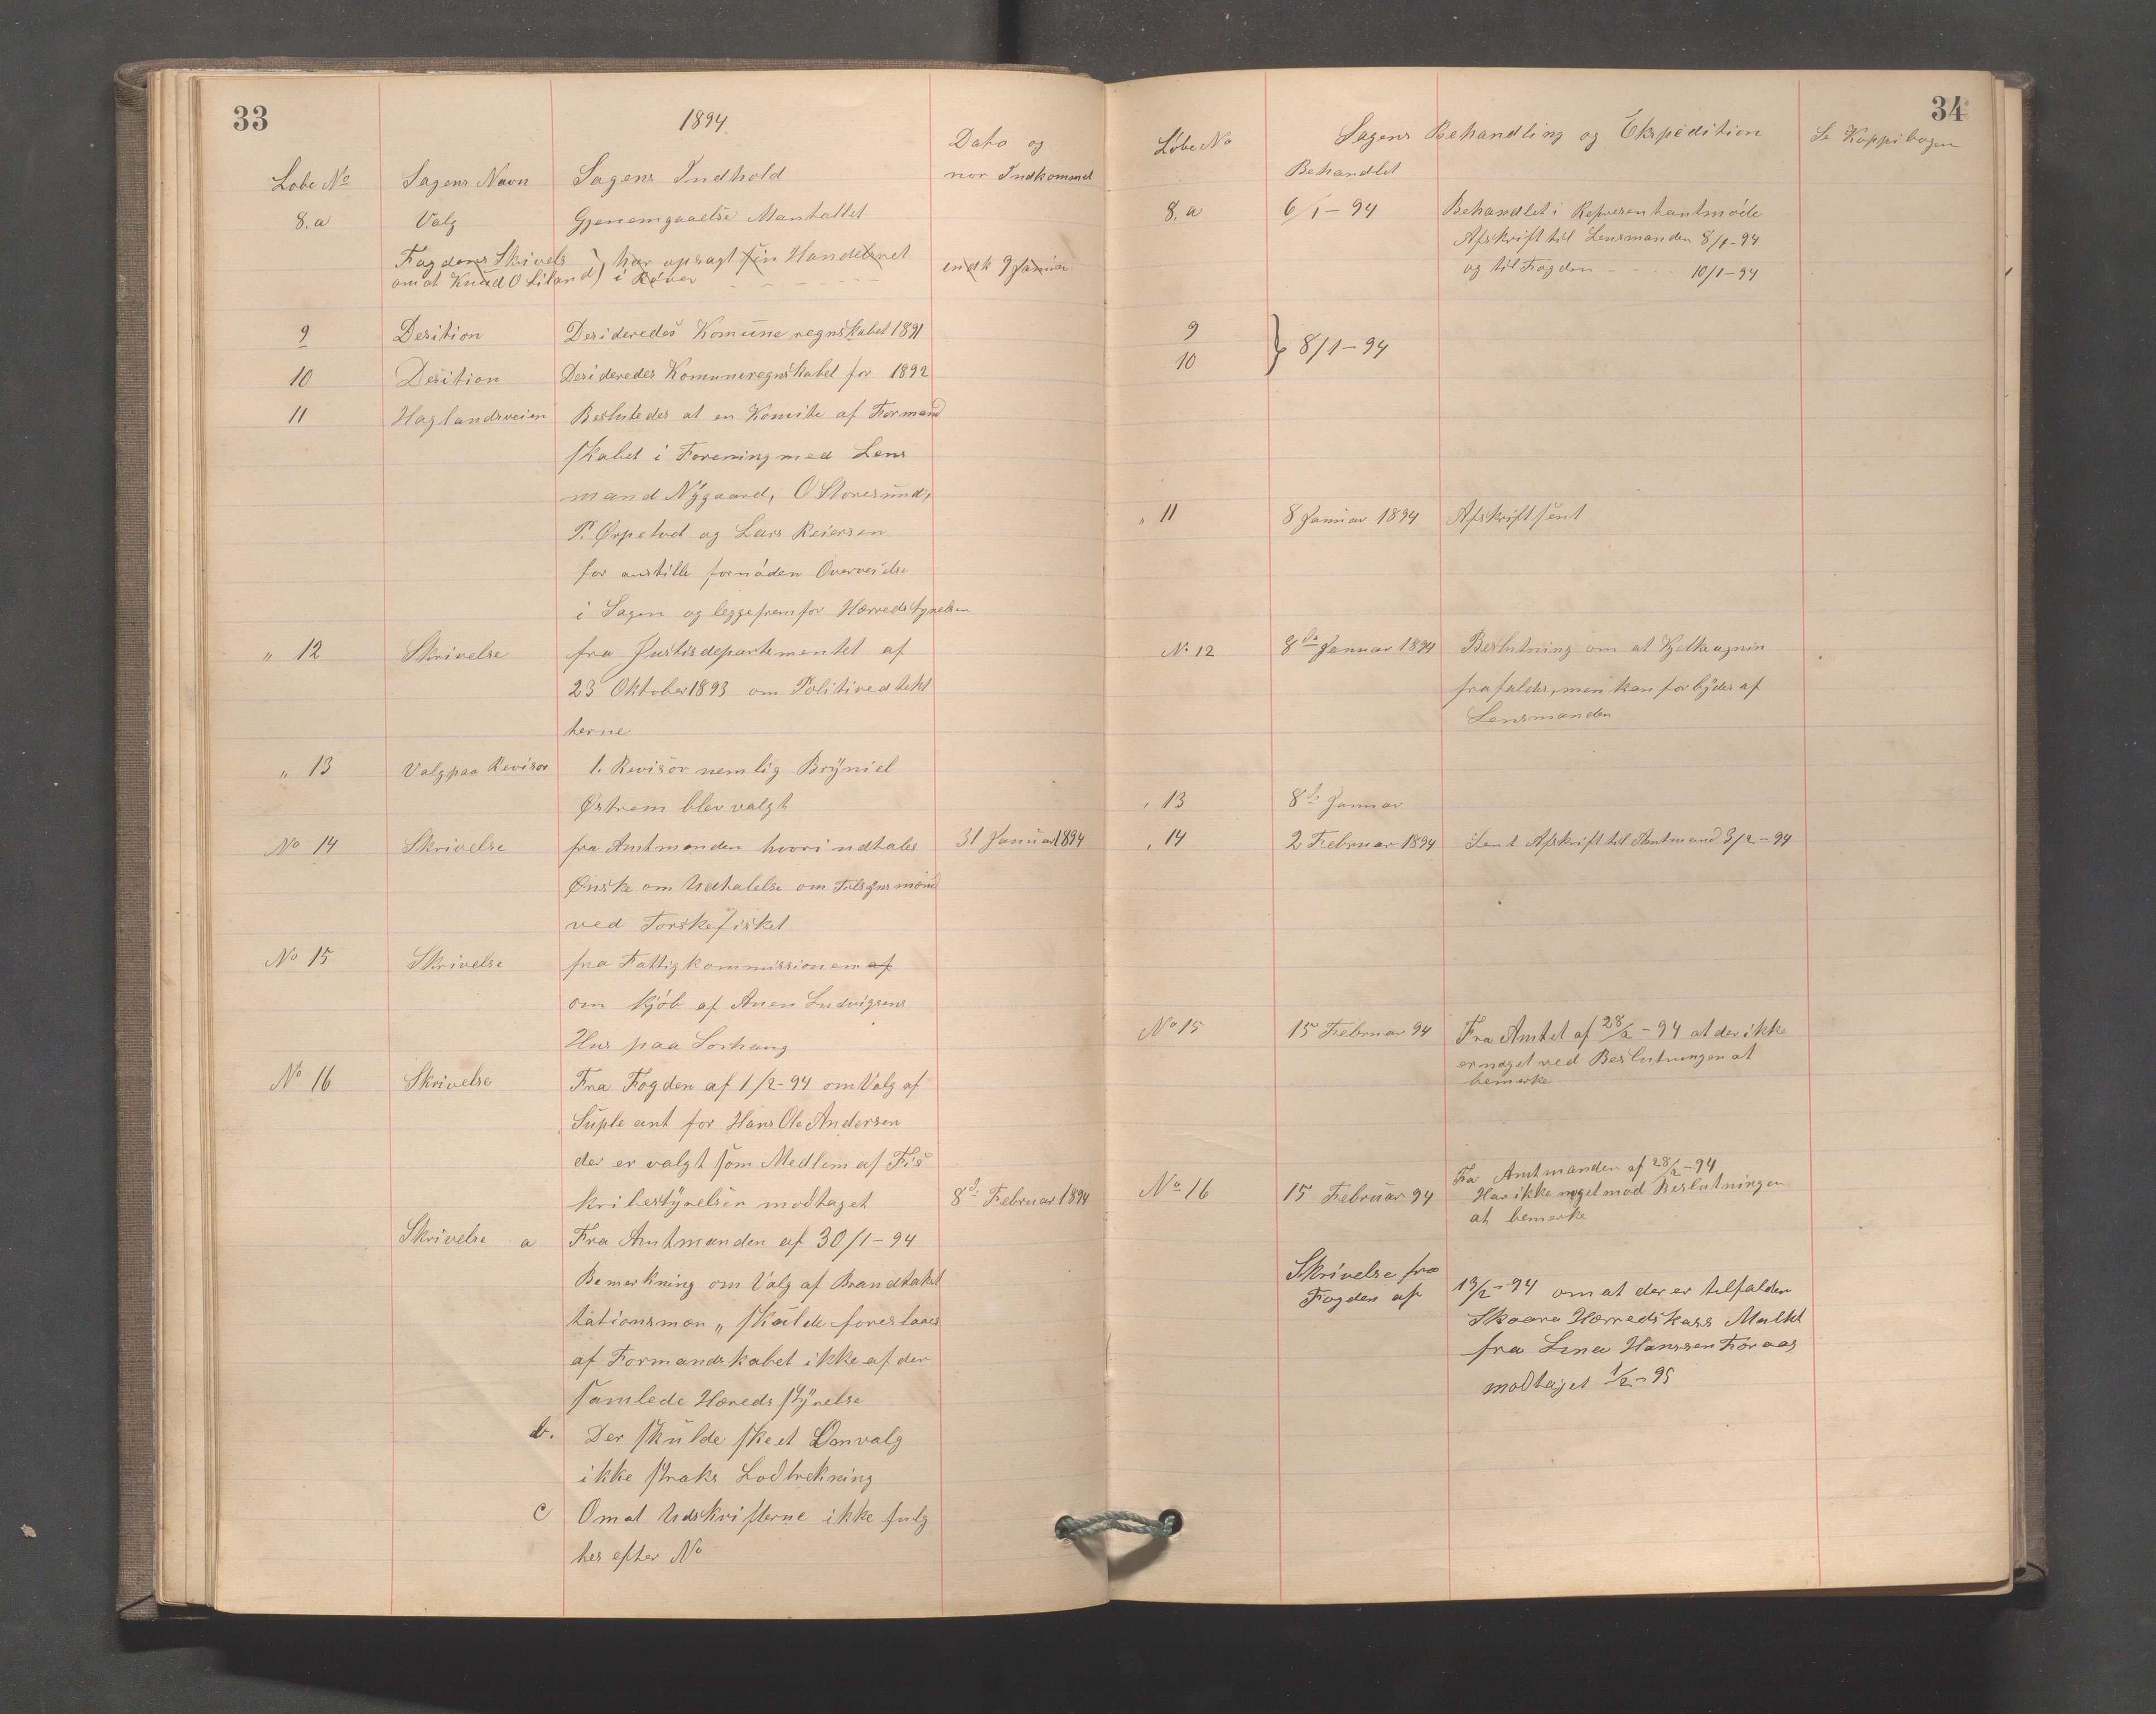 33
1894
Løbe No Sagens Navn Sagens Indhold Dato og
naar Indkommet
8.a Valg Gjenemgaaelse Mantallet
Fogdens Skivels } har opsagt sin Handelsret indk 9 Januar
om at Knud O Liland) i Røvær
9 Desition Desideredes Komune regnskabet 1891
10 Desition Desideredes Komuneregnskabet for 1892
11 Haglandsveien Beslutedes at en Komite af Formand
skabet i Forening med Lens
mand Nygaard, O Storesund,
P. Ørpetvet og Lars Reiersen
for anstille fornøden Overveielse
i Sagen og legge frem for Herredstyrelsen
„ 12 Skrivelse fra Justisdepartementet af
23 Oktober 1893 om Politivedtekt
terne
„ 13 Valg paa Revisor 1. Revisor nemlig Bryniel
Østrem blev valgt
No 14 Skrivelse fra Amtmanden hvori udtales 31 Januar 1894
Ønske om Udtalelse om Tilsynsmænd
ved Torskefisket
No 15 Skrivelse fra Fattigkommissionen af
om kjøb af Anen Ludvigsens
Hus paa Sorhaug
No 16 Skrivelse Fra Fogden af 1/2-94 om Valg af
Suple ant for Hans Ole Andersen
der er valgt som Medlem af Fis
kribestyrelsen modtaget 8d Februar 1894
Skrivelse a Fra Amtmanden af 30/1-94
Bemerkning om Valg af Brandtakst
tationsmæn „ skulde foreslaaes
af Formandskabet ikke af den
samlede Hereds styrelse
b. Der skulde skeet Omvalg
ikke straks Lodtrekning
c Om at Udskrifterne ikke fulg
tes efter No
34
Løbe No Sagens Behandling og Ekspedition Se Koppibogen
Behandlet
8.a 6/1-94 Behandlet i Representantmøde
Afskrift til Lensmanden 8/1-94
og til Fogden - - - - 10/1-94
9
10 } 8/1-94
„ 11 8 Januar 1894 Afskrift sent
No 12 8de Januar 1894 Beslutning om at
frafaldes, men kan forbydes af
Lensmanden
„ 13 8de Januar
„ 14 2 Februar 1894 Sent Afskrift til Amtmand 3/2-94
No 15 15 Februar 94 Fra Amtet af 28/2-94 at der ikke
er noget ved Beslutningen at
bemerke
No 16 15 Februar 94 Fra Amtmanden af 28/2-94
Har ikke noget mod Beslutningen
at bemerke
Skrivelse fra
Fogden af 13/2-94 om at der er tilfalden
Skaare Herredskass Mulkt
fra Lina Hanssen Foraas
modtaget 1/2-95